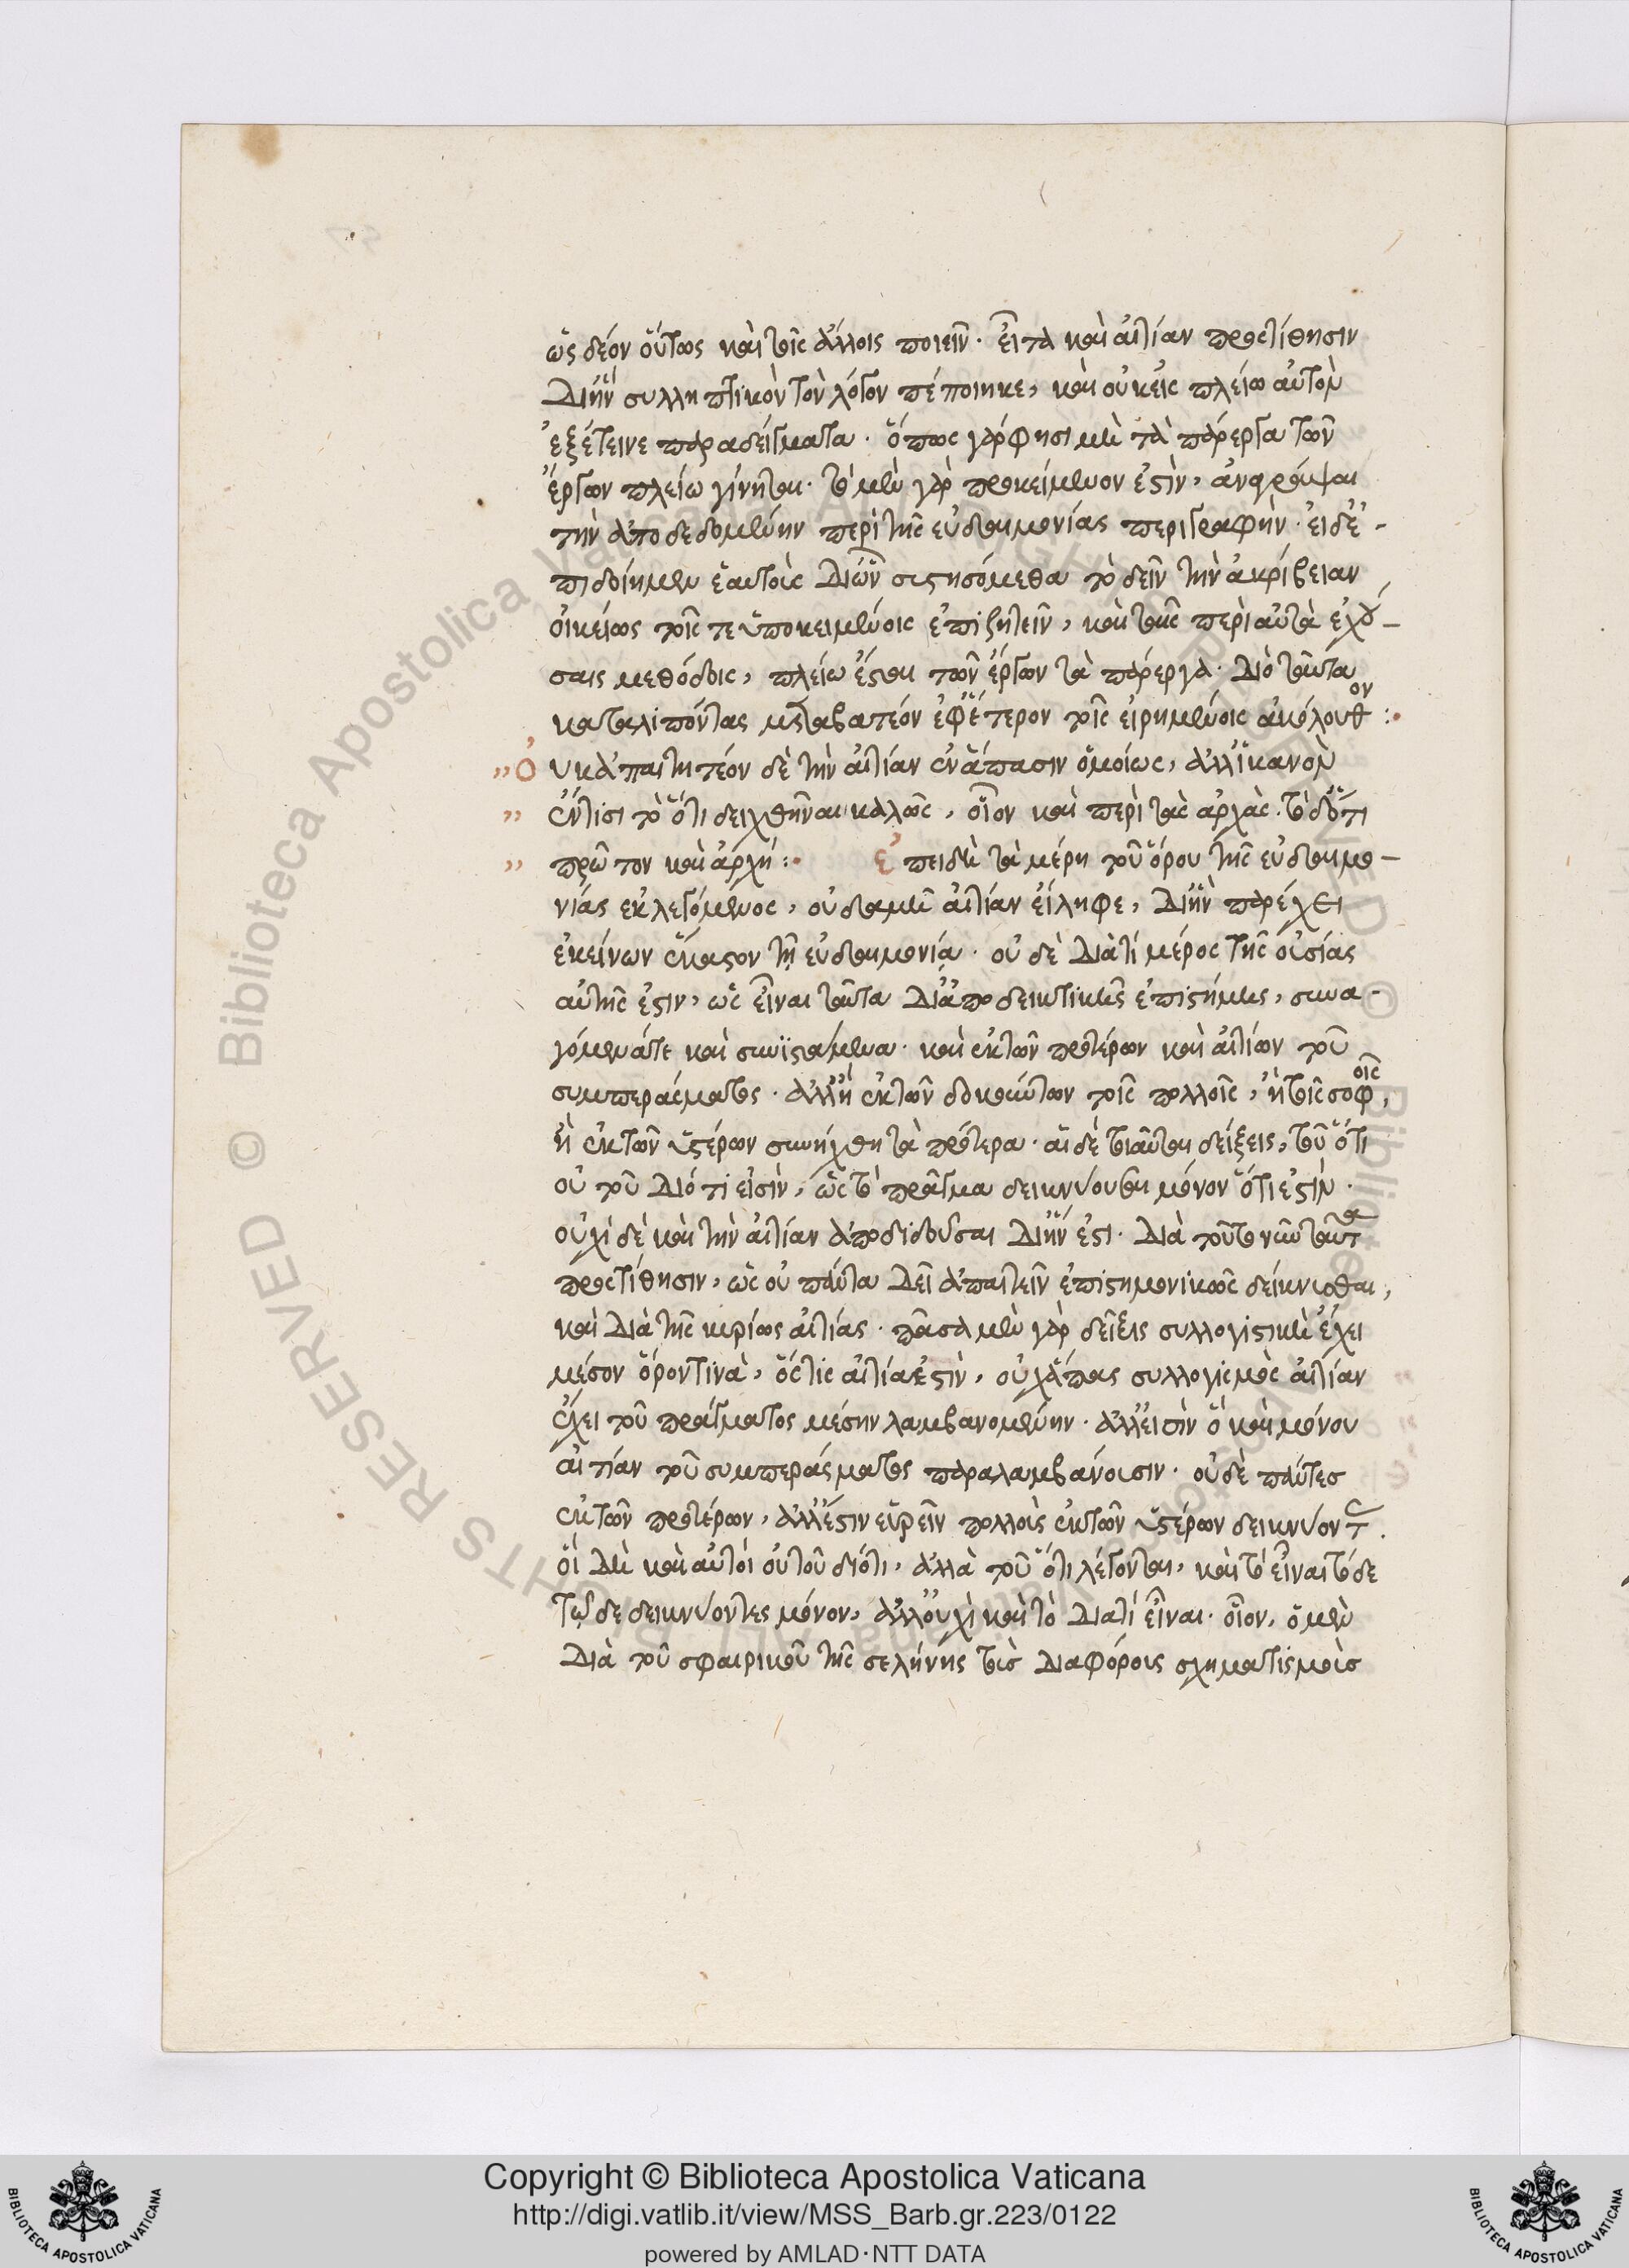 ὡς δέον οὕτως καὶ τοῖς ἄλλοις ποιεῖν· εἶτα καὶ αἰτίαν προστίθησιν
δι' ἣν συλληπτικὸν τὸν λόγον πέποιηκε, καὶ οὐκ εἰς πλείω αὐτὸν
ἐξέτεινε παραδείγματα· ὅπως γάρ φησι μὴ τὰ πάρεργα τῶν
ἔργων πλείω γίνηται· τὸ μὲν γὰρ προκείμενον ἐστὶν, ἀνακρούψαι
τὴν ἀποδεδομένην περὶ τῆς εὐδαιμονίας περιγραφὴν· εἰ δὲ ἐ-
πιδοίημεν ἑαυτοὺς δι' ὧν συζησόμεθα τὸ δεῖν τὴν ἀκρίβειαν
οἰκείως τοῖς τε ὑποκειμένοις ἐπιζητεῖν, καὶ ταῖς περὶ αὐτὰ ἐχού-
σαις μεθόδοις, πλείω ἔσται τῶν ἔργων τὰ πάρεργα· διὸ ταῦτα
καταλιπόντας μεταβατέον ἐφ' ἕτερον τοῖς εἰρημένοις ἀκόλουθον :·
" Οὐκ ἀπαιτητέον δὲ τὴν αἰτίαν ἐν ἅπασιν ὁμοίως, ἀλλ' ἱκανὸν
" ἔν τισι τὸ ὅτι δειχθῆναι καλῶς, οἷον καὶ περὶ τὰς ἀρχὰς· τὸ δ' ὅτι
" πρῶτον καὶ ἀρχή :· Ἐπειδὴ τὰ μέρη τοῦ ὅρου τῆς εὐδαιμο-
νίας ἐκλεγόμενος, οὐδαμῆ αἰτίαν εἴληφε, δι' ἣν παρέχει
ἐκείνων ἕκαστον τῇ εὐδαιμονίᾳ· οὐδὲ διὰ τί μέρος τῆς οὐσίας
αὐτῆς ἐστιν, ὡς εἶναι ταῦτα δι' ἀποδεικτικῆς ἐπιστήμης, συνα-
γόμενά τε καὶ συνϊστάμενα· καὶ ἐκ τῶν προτέρων καὶ αἰτίων τοῦ
συμπεράσματος· ἀλλ' ἢ ἐκ τῶν δοκούντων τοῖς πολλοῖς, ἢ τοῖς σοφοῖς,
ἢ ἐκ τῶν ὑστέρων συνήχθη τὰ πρότερα· αἱ δὲ τοιαῦται δείξεις, τοῦ ὅτι
οὐ τοῦ διότι εἰσὶν, ὡς τὸ πρᾶγμα δεικνύουσαι μόνον ὅτι ἐστὶν·
οὐχὶ δὲ καὶ τὴν αἰτίαν ἀποδιδοῦσαι δι' ἣν ἐστι· διὰ τοῦτο νῦν ταῦτα
προστίθησιν, ὡς οὐ πάντα δεῖ ἀπαιτεῖν ἐπιστημονικῶς δείκνυσθαι,
καὶ διὰ τῆς κυρίως αἰτίας· πᾶσα μὲν γὰρ δεῖξις συλλογιστικὴ ἔχει
μέσον ὅρον τινὰ, ὅς τις αἰτία ἐστὶν, οὐχ ἅπας συλλογισμὸς αἰτίαν
ἔχει τοῦ πράγματος μέσην λαμβανομένην· ἀλλ' εἰσὶν οἳ καὶ μόνου
αἰτίαν τοῦ συμπεράσματος παραλαμβάνουσιν· οὐδὲ πάντες
ἐκ τῶν προτέρων, ἀλλ' ἔστιν εὑρεῖν πολλοὺς ἐκ τῶν ὑστέρων δεικνύοντας.
οἳ δὴ καὶ αὐτοὶ οὐ τοῦ διότι, ἀλλὰ τοῦ ὅτι λέγονται, καὶ τὸ εἶναι τόδε
τῷδε δεικνύοντες μόνον, ἀλλ' οὐχὶ καὶ τὸ διατί εἶναι· οἷον, ὁ μὲν
διὰ τοῦ σφαιρικοῦ τῆς σελήνης τοὺς διαφόρους σχηματισμοὺς
© Biblioteca Apostolica Vaticana ALL RIGHTS RESERVED
BIBLIOTECA APOSTOLICA VATICANA
Copyright © Biblioteca Apostolica Vaticana
http://digi.vatlib.it/view/MSS_Barb.gr.223/0122
powered by AMLAD·NTT DATA
BIBLIOTECA APOSTOLICA VATICANA